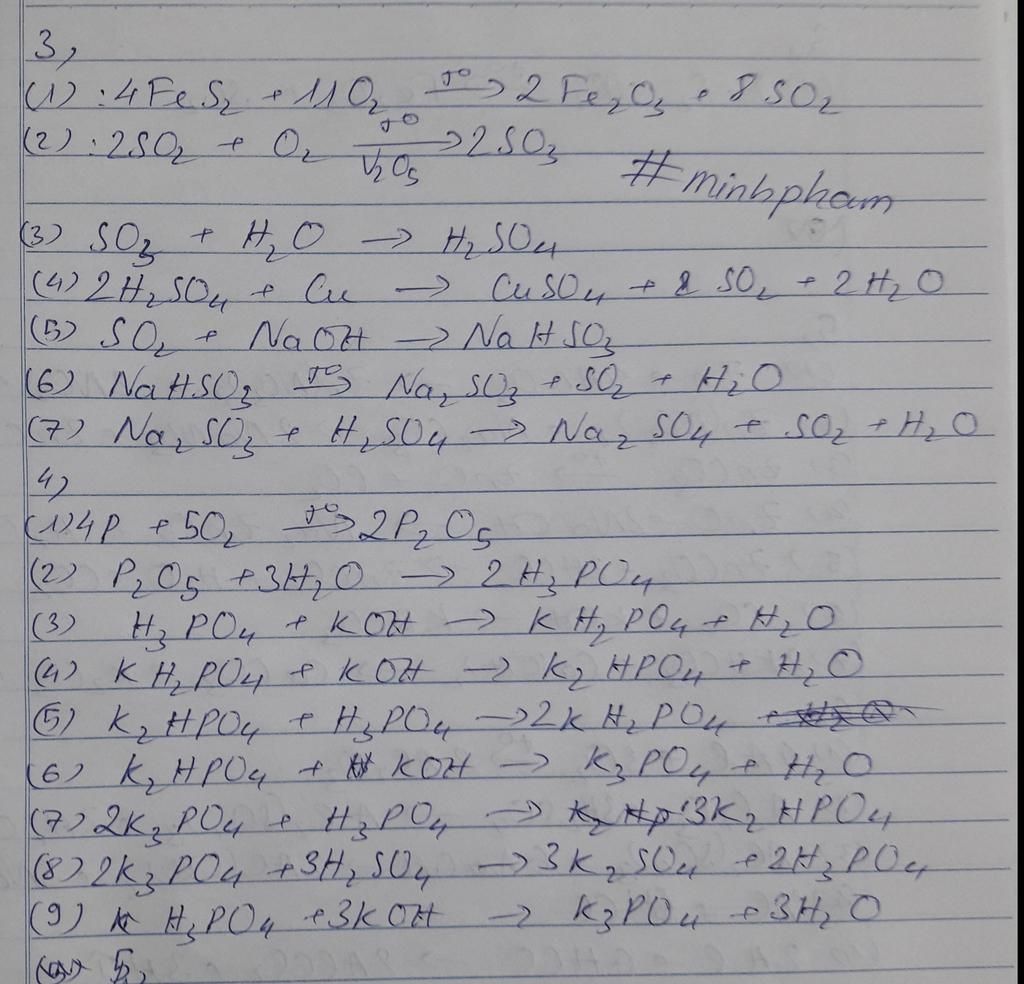 3,
(1) : 4FeS₂ + 11O₂ —t°→ 2Fe₂O₃ + 8SO₂
(2) : 2SO₂ + O₂ —t°, V₂O₅→ 2SO₃
#minhpham
(3) SO₃ + H₂O → H₂SO₄
(4) 2H₂SO₄ + Cu → CuSO₄ + SO₂ + 2H₂O
(5) SO₂ + NaOH → NaHSO₃
(6) NaHSO₃ —t°→ Na₂SO₃ + SO₂ + H₂O
(7) Na₂SO₃ + H₂SO₄ → Na₂SO₄ + SO₂ + H₂O
4,
(1) 4P + 5O₂ —t°→ 2P₂O₅
(2) P₂O₅ + 3H₂O → 2H₃PO₄
(3) H₃PO₄ + KOH → KH₂PO₄ + H₂O
(4) KH₂PO₄ + KOH → K₂HPO₄ + H₂O
(5) K₂HPO₄ + H₃PO₄ → 2KH₂PO₄
(6) K₂HPO₄ + KOH → K₃PO₄ + H₂O
(7) 2K₃PO₄ + H₃PO₄ → 3K₂HPO₄
(8) 2K₃PO₄ + 3H₂SO₄ → 3K₂SO₄ + 2H₃PO₄
(9) H₃PO₄ + 3KOH → K₃PO₄ + 3H₂O
5,